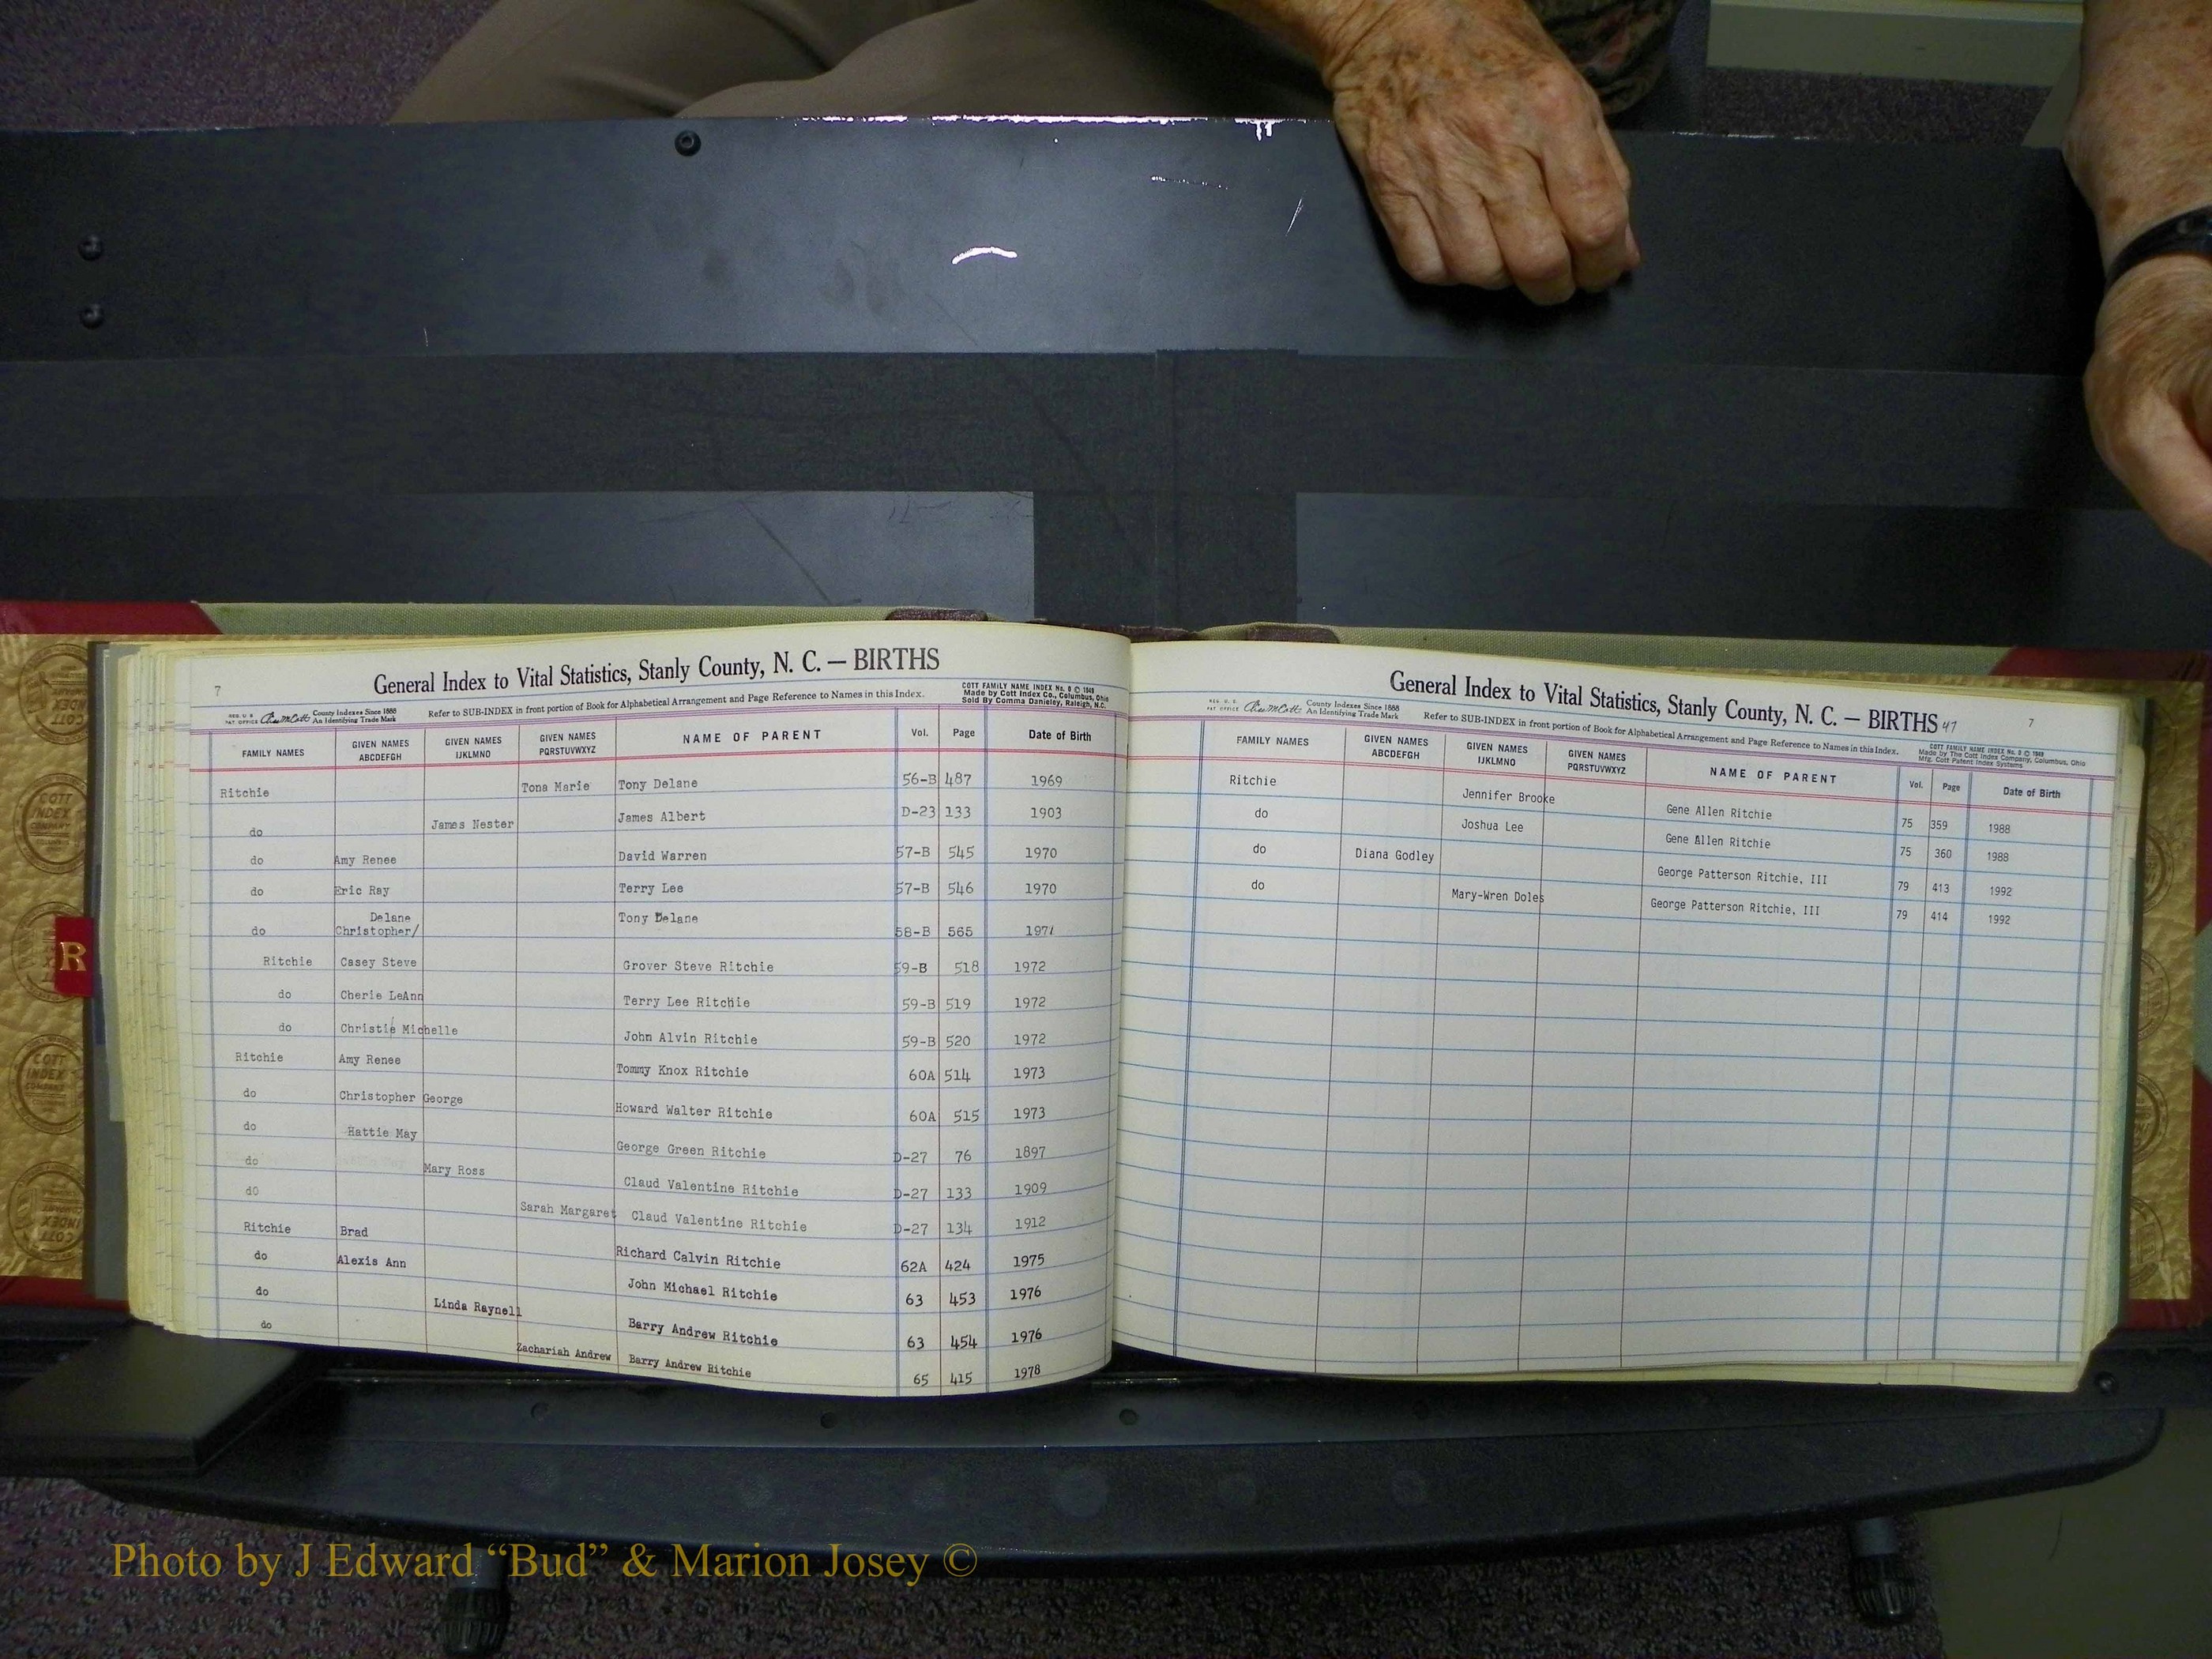 General Index to Vital Statistics, Stanly County, N. C. — BIRTHS
7
REG. U. S. PAT OFFICE County Indexes Since 1888 An Identifying Trade Mark
Refer to SUB-INDEX in front portion of Book for Alphabetical Arrangement and Page Reference to Names in this Index.
COTT FAMILY NAME INDEX No. 8 © 1949
Made by Cott Index Co., Columbus, Ohio
Sold By Comma Danieley, Raleigh, N.C.
FAMILY NAMES GIVEN NAMES ABCDEFGH GIVEN NAMES IJKLMNO GIVEN NAMES PQRSTUVWXYZ NAME OF PARENT Vol. Page Date of Birth
Ritchie Tona Marie Tony Delane 56-B 487 1969
do James Nester James Albert D-23 133 1903
do Amy Renee David Warren 57-B 545 1970
do Eric Ray Terry Lee 57-B 546 1970
Delane
do Christopher/ Tony Delane 58-B 565 1971
Ritchie Casey Steve Grover Steve Ritchie 59-B 518 1972
do Cherie LeAnn Terry Lee Ritchie 59-B 519 1972
do Christie Michelle John Alvin Ritchie 59-B 520 1972
Ritchie Amy Renee Tommy Knox Ritchie 60A 514 1973
do Christopher George Howard Walter Ritchie 60A 515 1973
do Hattie May George Green Ritchie D-27 76 1897
do Mary Ross Claud Valentine Ritchie D-27 133 1909
do Sarah Margaret Claud Valentine Ritchie D-27 134 1912
Ritchie Brad Richard Calvin Ritchie 62A 424 1975
do Alexis Ann John Michael Ritchie 63 453 1976
do Linda Raynell Barry Andrew Ritchie 63 454 1976
do Zachariah Andrew Barry Andrew Ritchie 65 415 1978
General Index to Vital Statistics, Stanly County, N. C. — BIRTHS 47
7
County Indexes Since 1888 An Identifying Trade Mark
Refer to SUB-INDEX in front portion of Book for Alphabetical Arrangement and Page Reference to Names in this Index.
COTT FAMILY NAME INDEX No. 8 © 1949
Made by The Cott Index Company, Columbus, Ohio
Mfg. Cott Patent Index Systems
FAMILY NAMES GIVEN NAMES ABCDEFGH GIVEN NAMES IJKLMNO GIVEN NAMES PQRSTUVWXYZ NAME OF PARENT Vol. Page Date of Birth
Ritchie Jennifer Brooke Gene Allen Ritchie 75 359 1988
do Joshua Lee Gene Allen Ritchie 75 360 1988
do Diana Godley George Patterson Ritchie, III 79 413 1992
do Mary-Wren Doles George Patterson Ritchie, III 79 414 1992
R
COTT INDEX COMPANY
Photo by J Edward “Bud” & Marion Josey ©